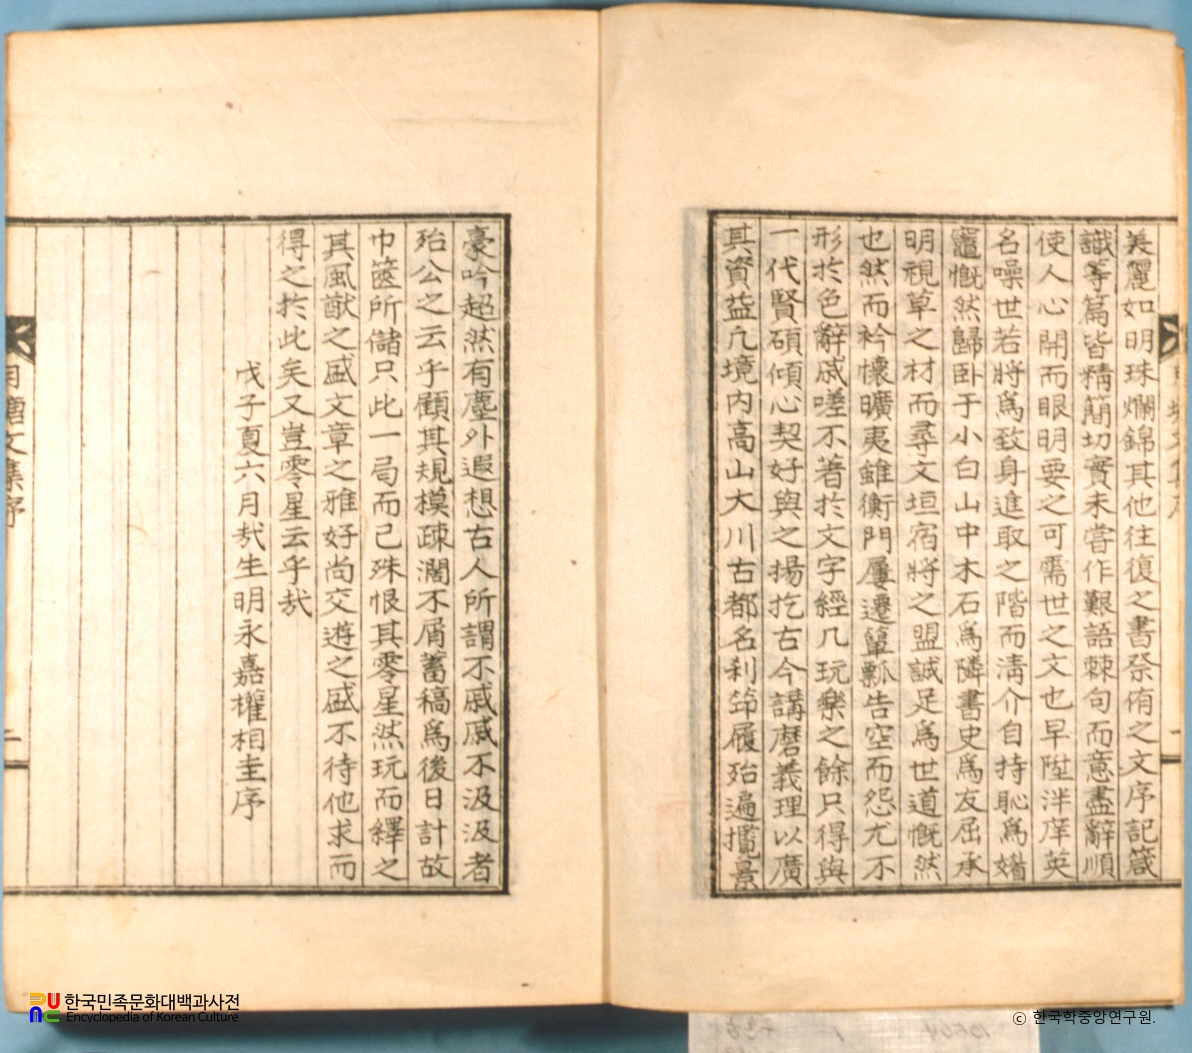 美麗如明珠爛錦其他往復之書祭侑之文序記箴
識等篇皆精簡切實未嘗作艱語棘句而意盡辭順
使人心開而眼明要之可需世之文也早陞泮庠英
名噪世若將爲致身進取之階而淸介自持恥爲媚
竈慨然歸卧于小白山中木石爲隣書史爲友屈承
明視草之材而尋文垣宿將之盟誠足爲世道慨然
也然而衿懷曠夷雖衡門屢遷簞瓢告空而怨尤不
形於色辭戚嗟不著於文字經几玩樂之餘只得與
一代賢碩傾心契好與之揚扢古今講磨義理以廣
其資益凡境內高山大川古都名利節履殆遍攬景
豪吟超然有塵外遐想古人所謂不戚戚不汲汲者
殆公之云乎顧其規模疎濶不屑蓄稿爲後日計故
巾篋所儲只此一局而已殊恨其零星然玩而繹之
其風猷之盛文章之雅好尙交遊之盛不待他求而
得之於此矣又豈零星云乎哉
戊子夏六月哉生明永嘉權相圭序
文集序
二
한국민족문화대백과사전
Encyclopedia of Korean Culture
ⓒ 한국학중앙연구원.